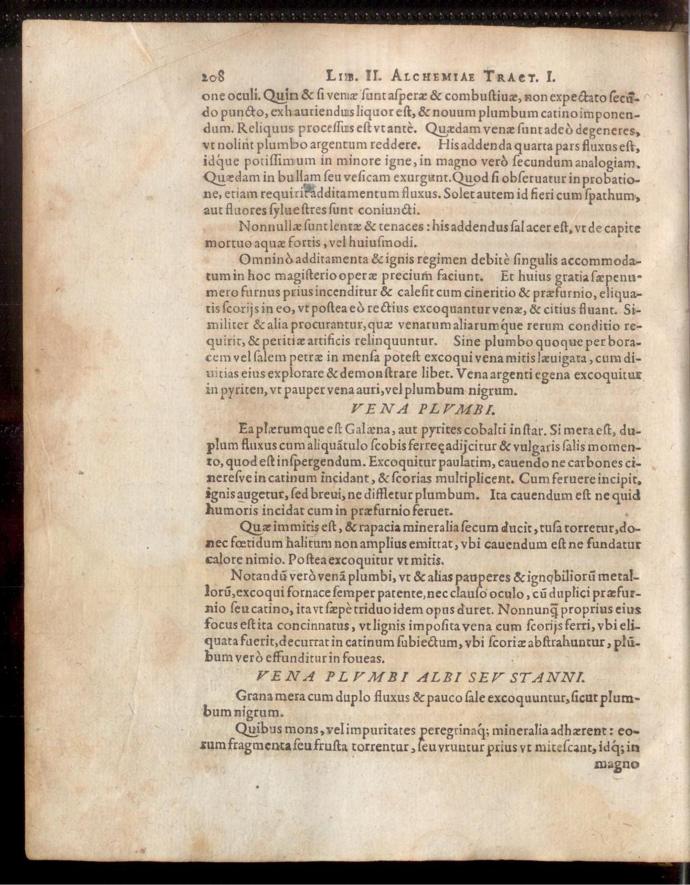 208 LIB. II. ALCHEMIAE TRACT. I.
one oculi. Quin & si venæ sunt asperæ & combustiuæ, non expectato secũ-
do puncto, exhauriendus liquor est, & nouum plumbum catino imponen-
dum. Reliquus processus est vt antè. Quædam venæ sunt adeò degeneres,
vt nolint plumbo argentum reddere. His addenda quarta pars fluxus est,
idque potissimum in minore igne, in magno verò secundum analogiam.
Quædam in bullam seu vesicam exurgunt. Quod si obseruatur in probatio-
ne, etiam requirit additamentum fluxus. Solet autem id fieri cum spathum,
aut fluores syluestres sunt coniuncti.
Nonnullæ sunt lentæ & tenaces: his addendus sal acer est, vt de capite
mortuo aquæ fortis, vel huiusmodi.
Omninò additamenta & ignis regimen debitè singulis accommoda-
tum in hoc magisterio operæ precium faciunt. Et huius gratia sæpenu-
mero furnus prius incenditur & calefit cum cineritio & præfurnio, eliqua-
tis scorijs in eo, vt postea eò rectius excoquantur venæ, & citius fluant. Si-
militer & alia procurantur, quæ venarum aliarumque rerum conditio re-
quirit, & peritiæ artificis relinquuntur. Sine plumbo quoque per bora-
cem vel salem petræ in mensa potest excoqui vena mitis læuigata, cum di-
uitias eius explorare & demonstrare libet. Vena argenti egena excoquitur
in pyriten, vt pauper vena auri, vel plumbum nigrum.
VENA PLVMBI.
Ea plærumque est Galæna, aut pyrites cobalti instar. Si mera est, du-
plum fluxus cum aliquãtulo scobis ferreę adijcitur & vulgaris salis momen-
to, quod est inspergendum. Excoquitur paulatim, cauendo ne carbones ci-
neresve in catinum incidant, & scorias multiplicent. Cum feruere incipit,
ignis augetur, sed breui, ne diffletur plumbum. Ita cauendum est ne quid
humoris incidat cum in præfurnio feruet.
Quæ immitis est, & rapacia mineralia secum ducit, tusa torretur, do-
nec fœtidum halitum non amplius emittat, vbi cauendum est ne fundatur
calore nimio. Postea excoquitur vt mitis.
Notandũ verò venã plumbi, vt & alias pauperes & ignobiliorũ metal-
lorũ, excoqui fornace semper patente, nec clauso oculo, cũ duplici præfur-
nio seu catino, ita vt sæpè triduo idem opus duret. Nonnunq̃ proprius eius
focus est ita concinnatus, vt lignis imposita vena cum scorijs ferri, vbi eli-
quata fuerit, decurrat in catinum subiectum, vbi scoriæ abstrahuntur, plũ-
bum verò effunditur in foueas.
VENA PLVMBI ALBI SEV STANNI.
Grana mera cum duplo fluxus & pauco sale excoquuntur, sicut plum-
bum nigrum.
Quibus mons, vel impuritates peregrinaq́; mineralia adhærent: eo-
rum fragmenta seu frusta torrentur, seu vruntur prius vt mitescant, idq́; in
magno